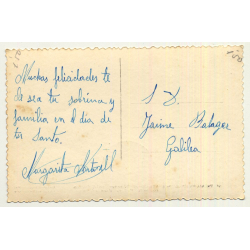 Muchas felicidades te
desea tu sobrina y
familia en el dia de
tu Santo.
Margarita
S D.
Jaime Balaguer
Galilea